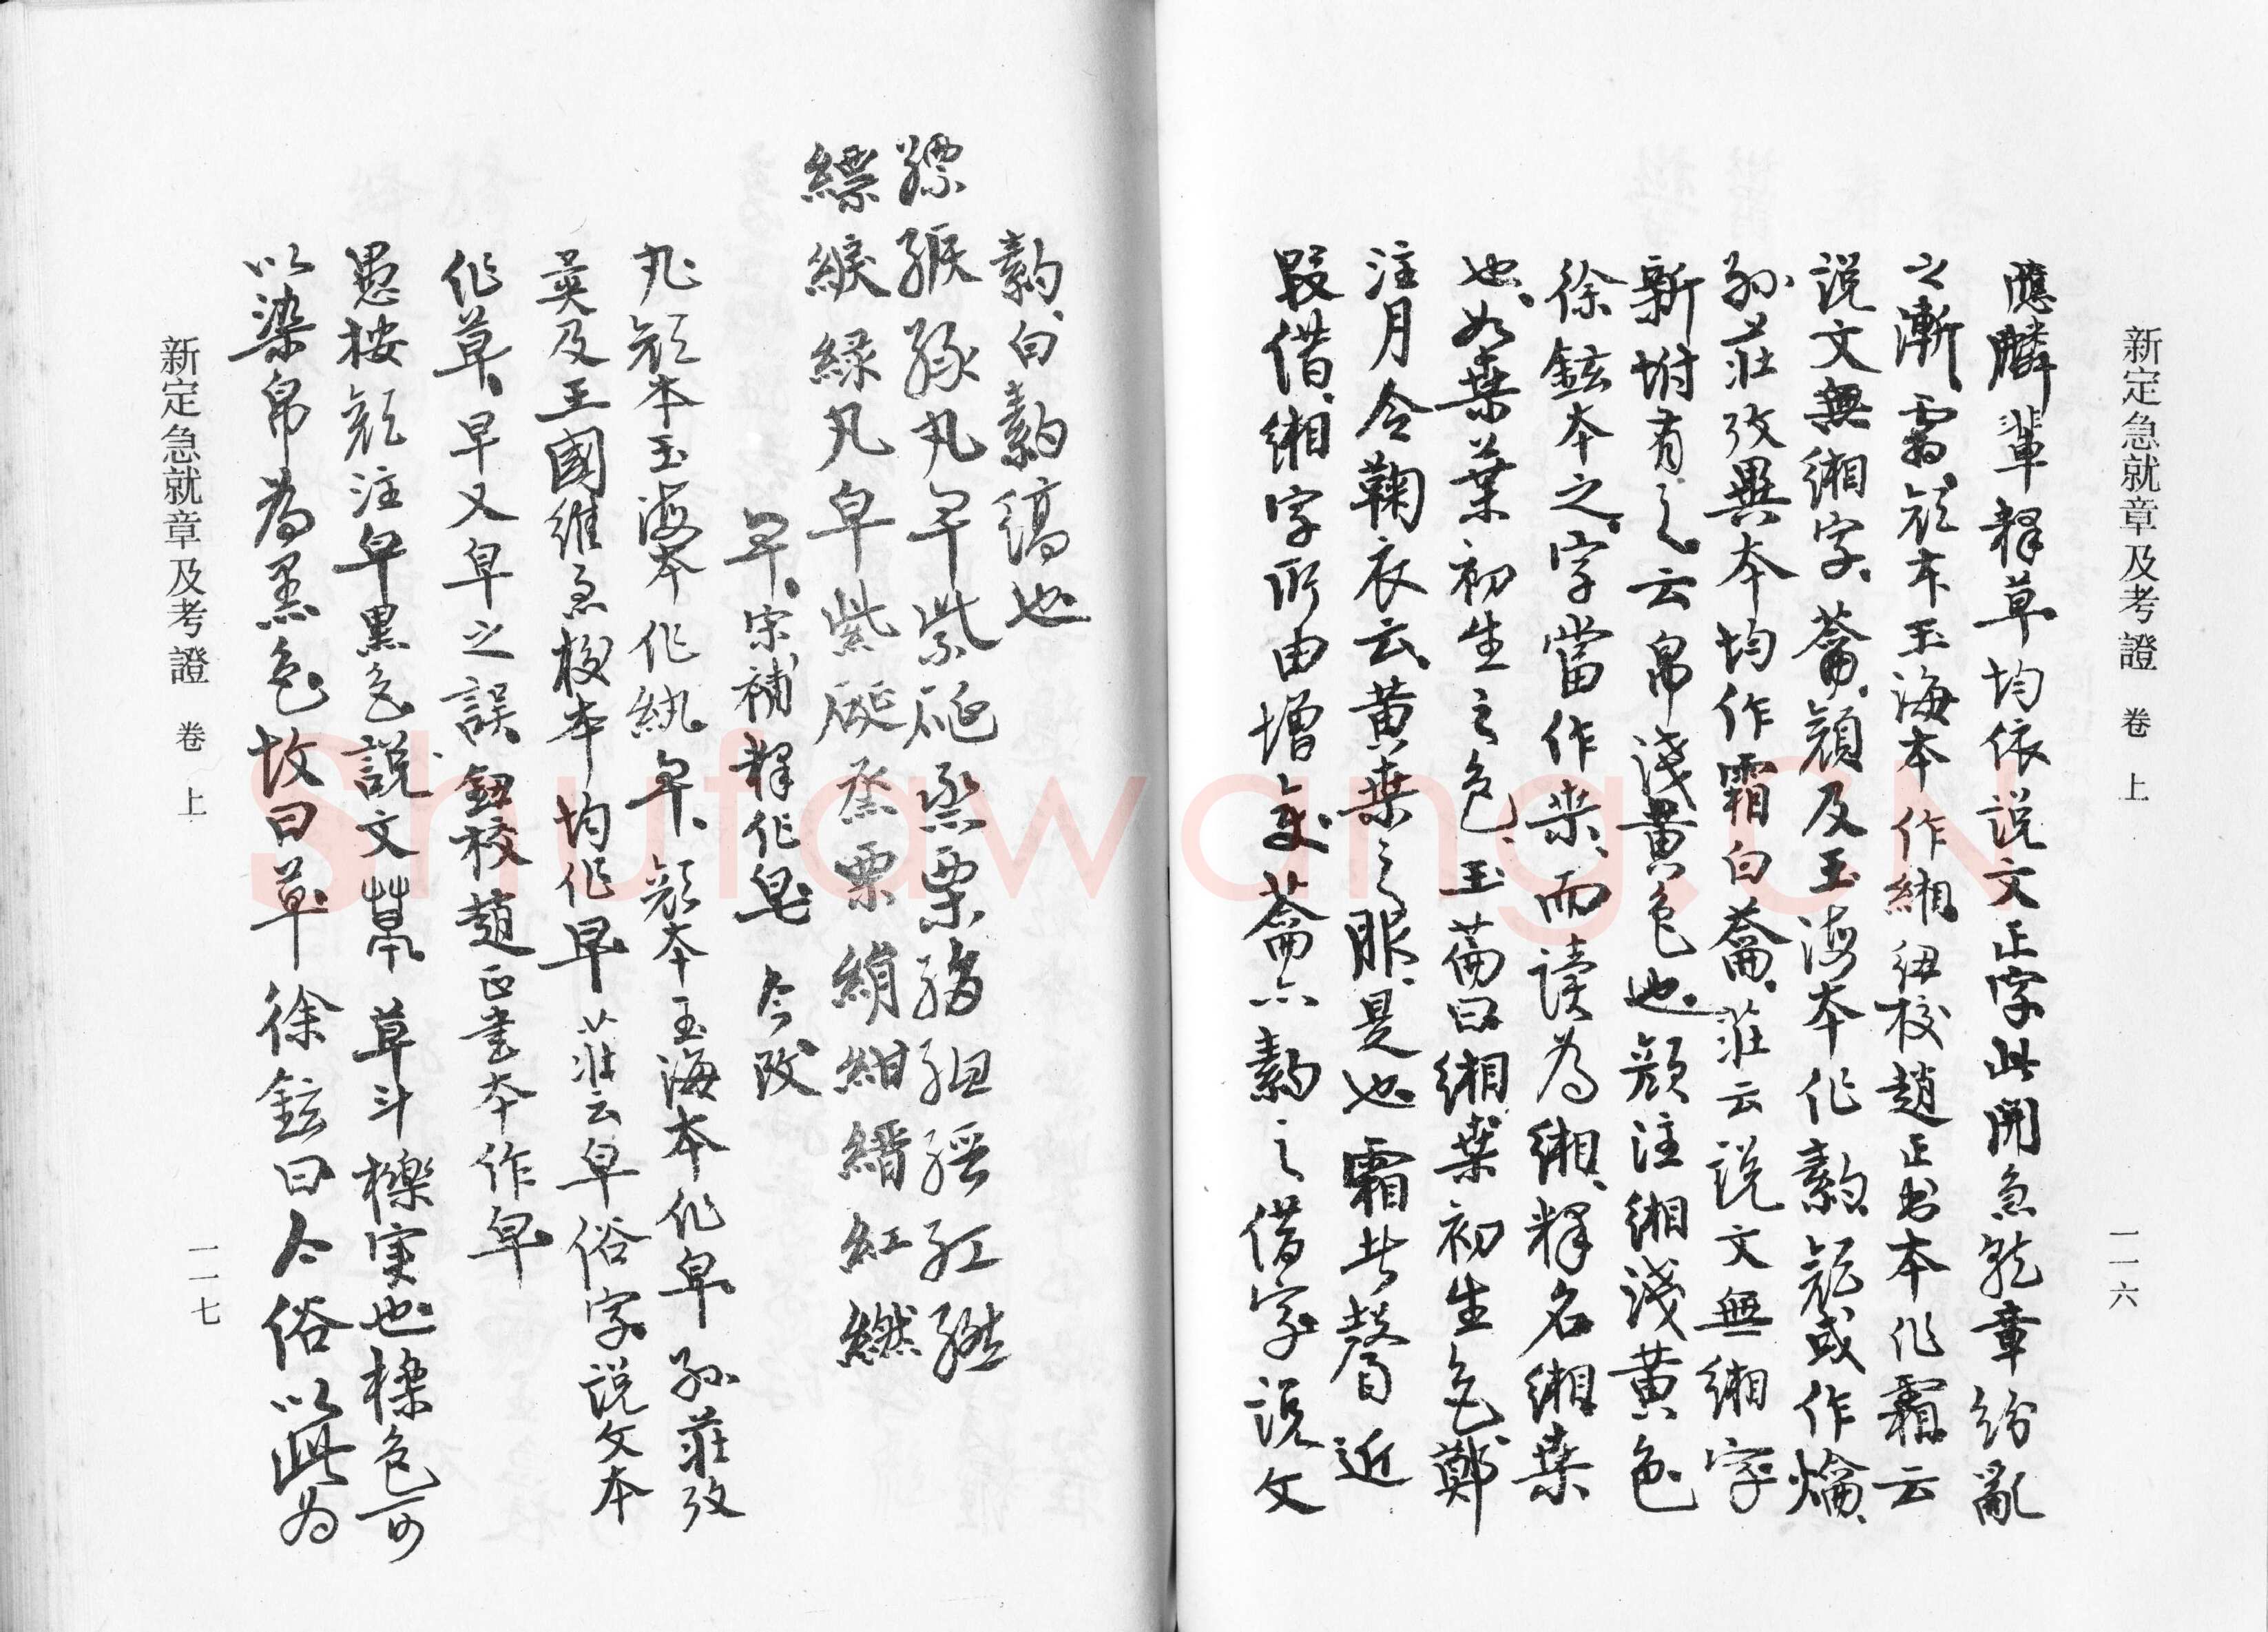 新定急就章及考證 卷上
一一六
應麟輩釋草均依說文正字此開急就章紛亂
之漸霜顏本玉海本作緗鈕校趙正書本作霜云
說文無緗字蘥顏及玉海本作顏或作爚
孫莊攷異本均作霜白蘥莊云說文無緗字
新坿有之云帛淺黃色也顏注緗淺黃色
徐鉉本之字當作桒而讀為緗釋名緗桒
也如桒葉初生之色玉篇曰緗桒初生色鄭
注月令鞠衣云黃桒之服是也霜此聲近
叚借緗字所由增矣蘥亦之借字說文
白縞也
縹綟綠丸早紫硟烝栗絹紺縉紅繎
縹綟綠丸皁紫硟烝栗絹紺縉紅繎
早宋補釋作皂今改
丸顏本玉海本作紈早顏本玉海本作皁孫莊攷
異及王國維急校本均作早莊云皁俗字說文本
作草早又皁之誤鈕校趙正書本作皁
愚按顏注皁黑色說文草草斗櫟實也樣色可
以染帛為黑色故曰草徐鉉曰今俗以此為
新定急就章及考證 卷上
一一七